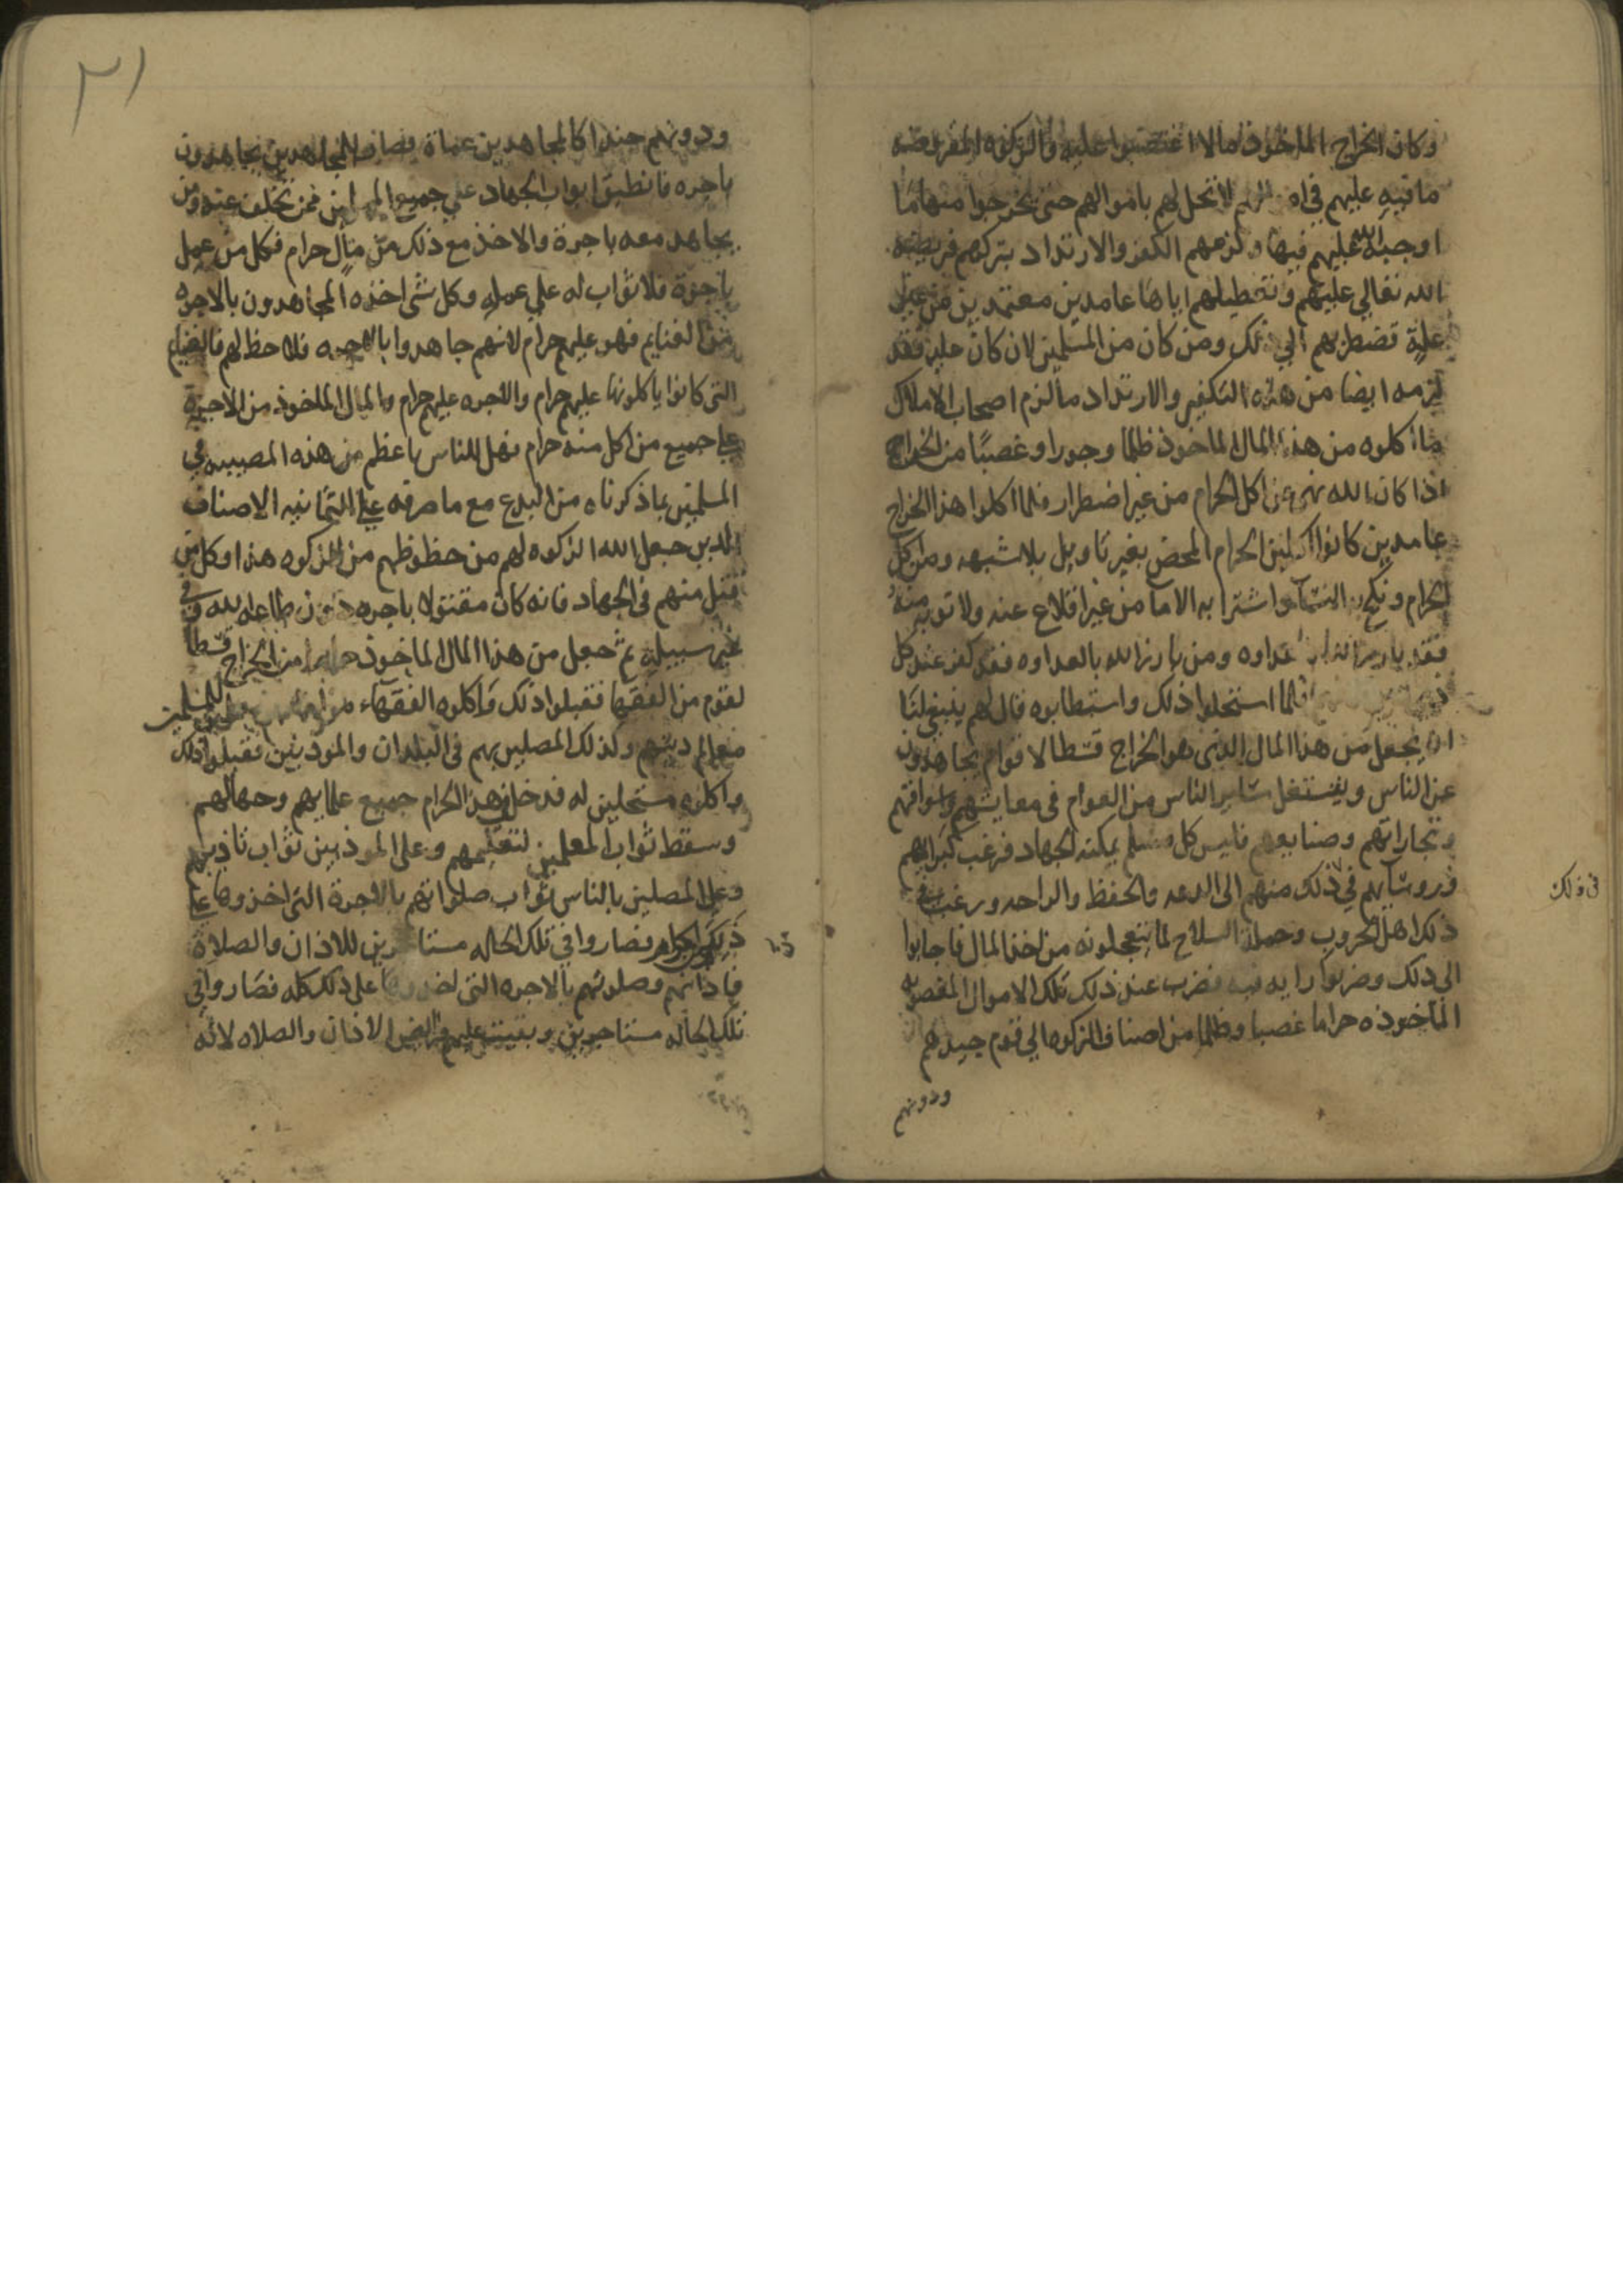 وكان الخراج الماخوذ مالا اغتصبوا عليه والزكوه المفروضه
ما فيه عليهم في لا تحل لهم باموالهم حتى يخرجوا منها ما
اوجبه الله عليهم فيها ولزمهم الكفر والارتداد بتركهم فريضه
الله تعالى عليهم وتعطيلهم اياها عامدين معتمدين من غير
علة تضطرهم الي ذلك ومن كان من المسلمين لان كان عليه فقد
لزمه ايضا من هذه التكفير والارتداد ما لزم اصحاب الاملاك
ما اكلوه من هذا المال الماخوذ ظلما وجورا وغصبا من الخراج
اذا كان الله نهى عن اكل الحرام من غير اضطرار فلما اكلوا هذا الخراج
عامدين كانوا اكلين الحرام المحض بغير تاويل بلا شبهه ومن اكل
الحرام ونكح به النسآ واشترا به الاما من غير اقلاع عنه ولا توبه منه
فقد بارز الله عداوه ومن بارز الله بالعداوه فقد كفر عند كل
فلما استحلوا ذلك واستطابوه قال لهم ينبغي لنا
ان يجعل من هذا المال الذي هو الخراج قسطا لاقوام يجاهدون
عن الناس ويشتغل ساير الناس من العوام في معايشهم واسواقهم
وتجاراتهم وصنايعهم فليس كل مسلم يمكنه الجهاد فرغب كبرايهم
وروسايهم في ذلك منهم الى الدعه والحفظ والراحه ورغب في
ذلك اهل الحروب وحملة السلاح لما يتعجلونه من اخذ المال فاجابوا
الى ذلك وضربوا رايه فيه فضرب عند ذلك تلك الاموال المغصوبه
المأخوذه حراما غصبا وظلما من اصناف الزكوه الي قوم جيدهم
ودونهم
في ذلك
٣١
ودونهم جندا كالمجاهدين عناة فصار المجاهدين يجاهدون
باجره فانطبق ابواب الجهاد علي جميع فمن تخلف عنه ومن
يجاهد معه باجرة والاخذ مع ذلك من مال حرام فكل من عمل
باجرة فلا ثواب له علي عمله وكل شي اخذه المجاهدون بالاجره
من الغنايم فهو عليهم حرام لانهم جاهدوا بالاجره فلا حظ لهم فالغنايم
التي كانوا ياكلونها عليهم حرام والاجره عليهم حرام والمال الماخوذ من الاجرة
علي جميع من اكل منه حرام فهل للناس باعظم من هذه المصيبه في
المسلمين بما ذكرناه من البدع مع ما صرفه علي الثمانيه الاصناف
الذين جعل الله الزكوه لهم من حظوظهم من الزكوه هذا وكل من
قتل منهم في الجهاد فانه كان مقتولا باجره دون طاعه الله وفي
غير سبيله ثم جعل من هذا المال الماخوذ حراما من الخراج قسطا
لقوم من الفقها فقبلوا ذلك وأكلوه الفقهاء للمسلمين
معالم دينهم وكذلك المصلين بهم في البلدان والموذنين فقبلوا ذلك
واكلوه مستحلين له فدخل في هذا الحرام جميع علمايهم وجهالهم
وسقط ثواب المعلمين لتعليمهم وعلى الموذنين ثواب تاذينهم
وعلى المصلين بالناس ثواب صلواتهم بالاجرة التي اخذوها علي
ذلك فصاروا في تلك الحاله مستاجرين للاذان والصلاة
فاذانهم وصلوتهم بالاجره التي اخذوها على ذلك كله فصاروا في
تلك الحاله مستاجرين وبقيت عليهم فرايض الاذان والصلاه لانه